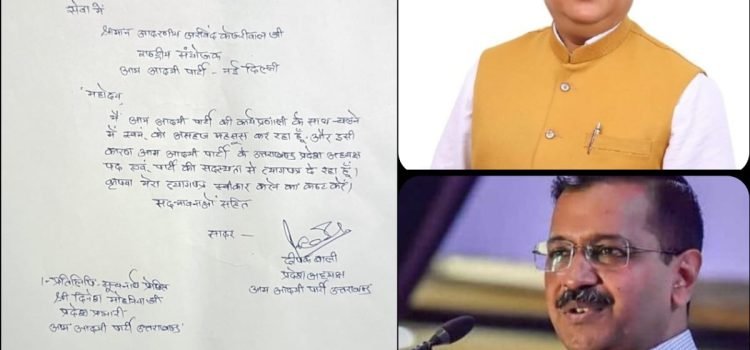 सेवा में
श्रीमान आदरणीय अरविंद केजरीवाल जी
राष्ट्रीय संयोजक
आम आदमी पार्टी - नई दिल्ली
महोदय,
मैं आम आदमी पार्टी की कार्यप्रणाली के साथ-चलने
में स्वयं को असहज महसूस कर रहा हूँ, और इसी
कारण आम आदमी पार्टी के उत्तराखण्ड प्रदेश अध्यक्ष
पद एवं पार्टी की सदस्यता से त्यागपत्र दे रहा हूँ।
कृपया मेरा त्यागपत्र स्वीकार करने का कष्ट करें।
सद्भावनाओं सहित
सादर -
दीपक बाली
प्रदेश अध्यक्ष
आम आदमी पार्टी उत्तराखण्ड
1- प्रतिलिपि - सूचनार्थ प्रेषित
श्री दिनेश मोहनिया जी
प्रदेश प्रभारी
आम आदमी पार्टी उत्तराखण्ड